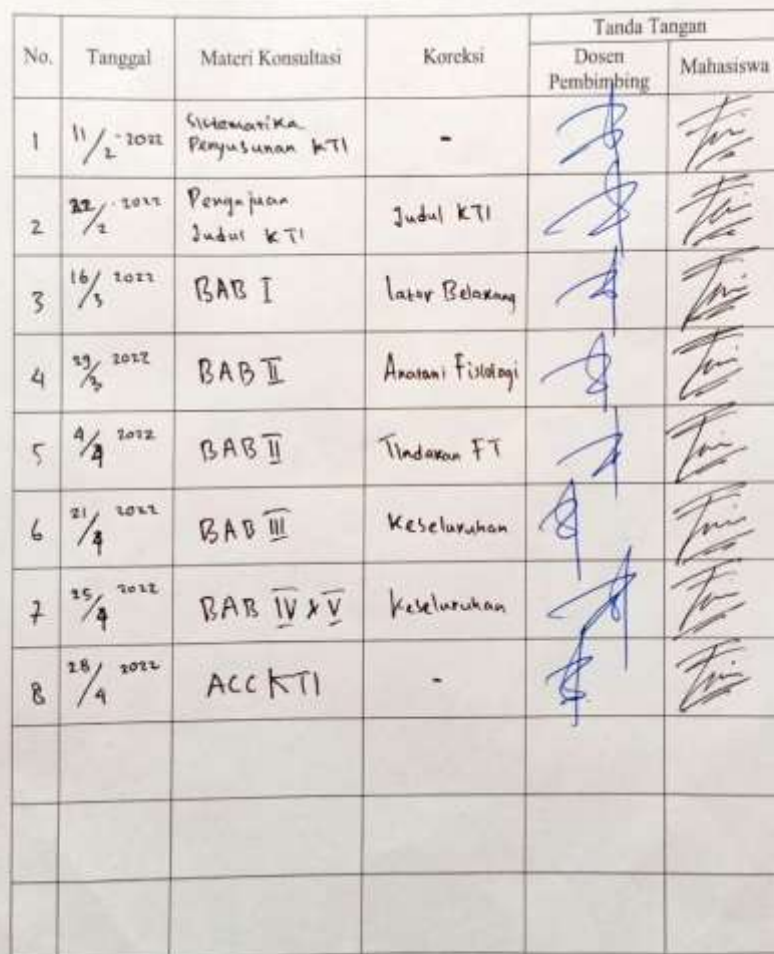 No. Tanggal Materi Konsultasi Koreksi Tanda Tangan
Dosen Pembimbing Mahasiswa
1 11/2-2022 Sistematika Penyusunan KTI -
2 22/2-2022 Pengajuan Judul KTI Judul KTI
3 16/3 2022 BAB I latar Belakang
4 29/3 2022 BAB II Anatomi Fisiologi
5 4/4 2022 BAB II Tindakan FT
6 21/4 2022 BAB III Keseluruhan
7 25/4 2022 BAB IV & V Keseluruhan
8 28/4 2022 ACC KTI -